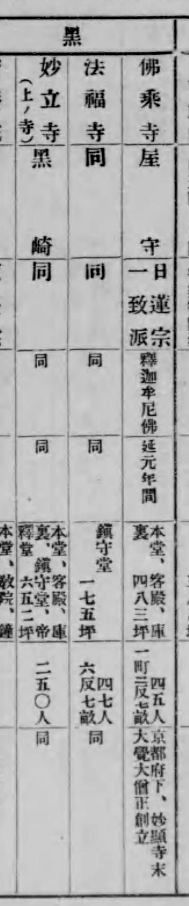 黑
佛乘寺
屋守
日蓮宗
一致派
釋迦牟尼佛
延元年間
本堂、客殿、庫
裏 四八三坪
四五人
一町三反七畝
京都府下、妙顯寺末
大覺大僧正創立
法福寺
同
同
同
同
鎭守堂
一七五坪
四七人
六反七畝
同
妙立寺
(上ノ寺)
黑崎
同
同
同
本堂、客殿、庫
裏、鎭守堂、帝
釋堂 六五二坪
二五〇人
同
本堂、敎院、鐘